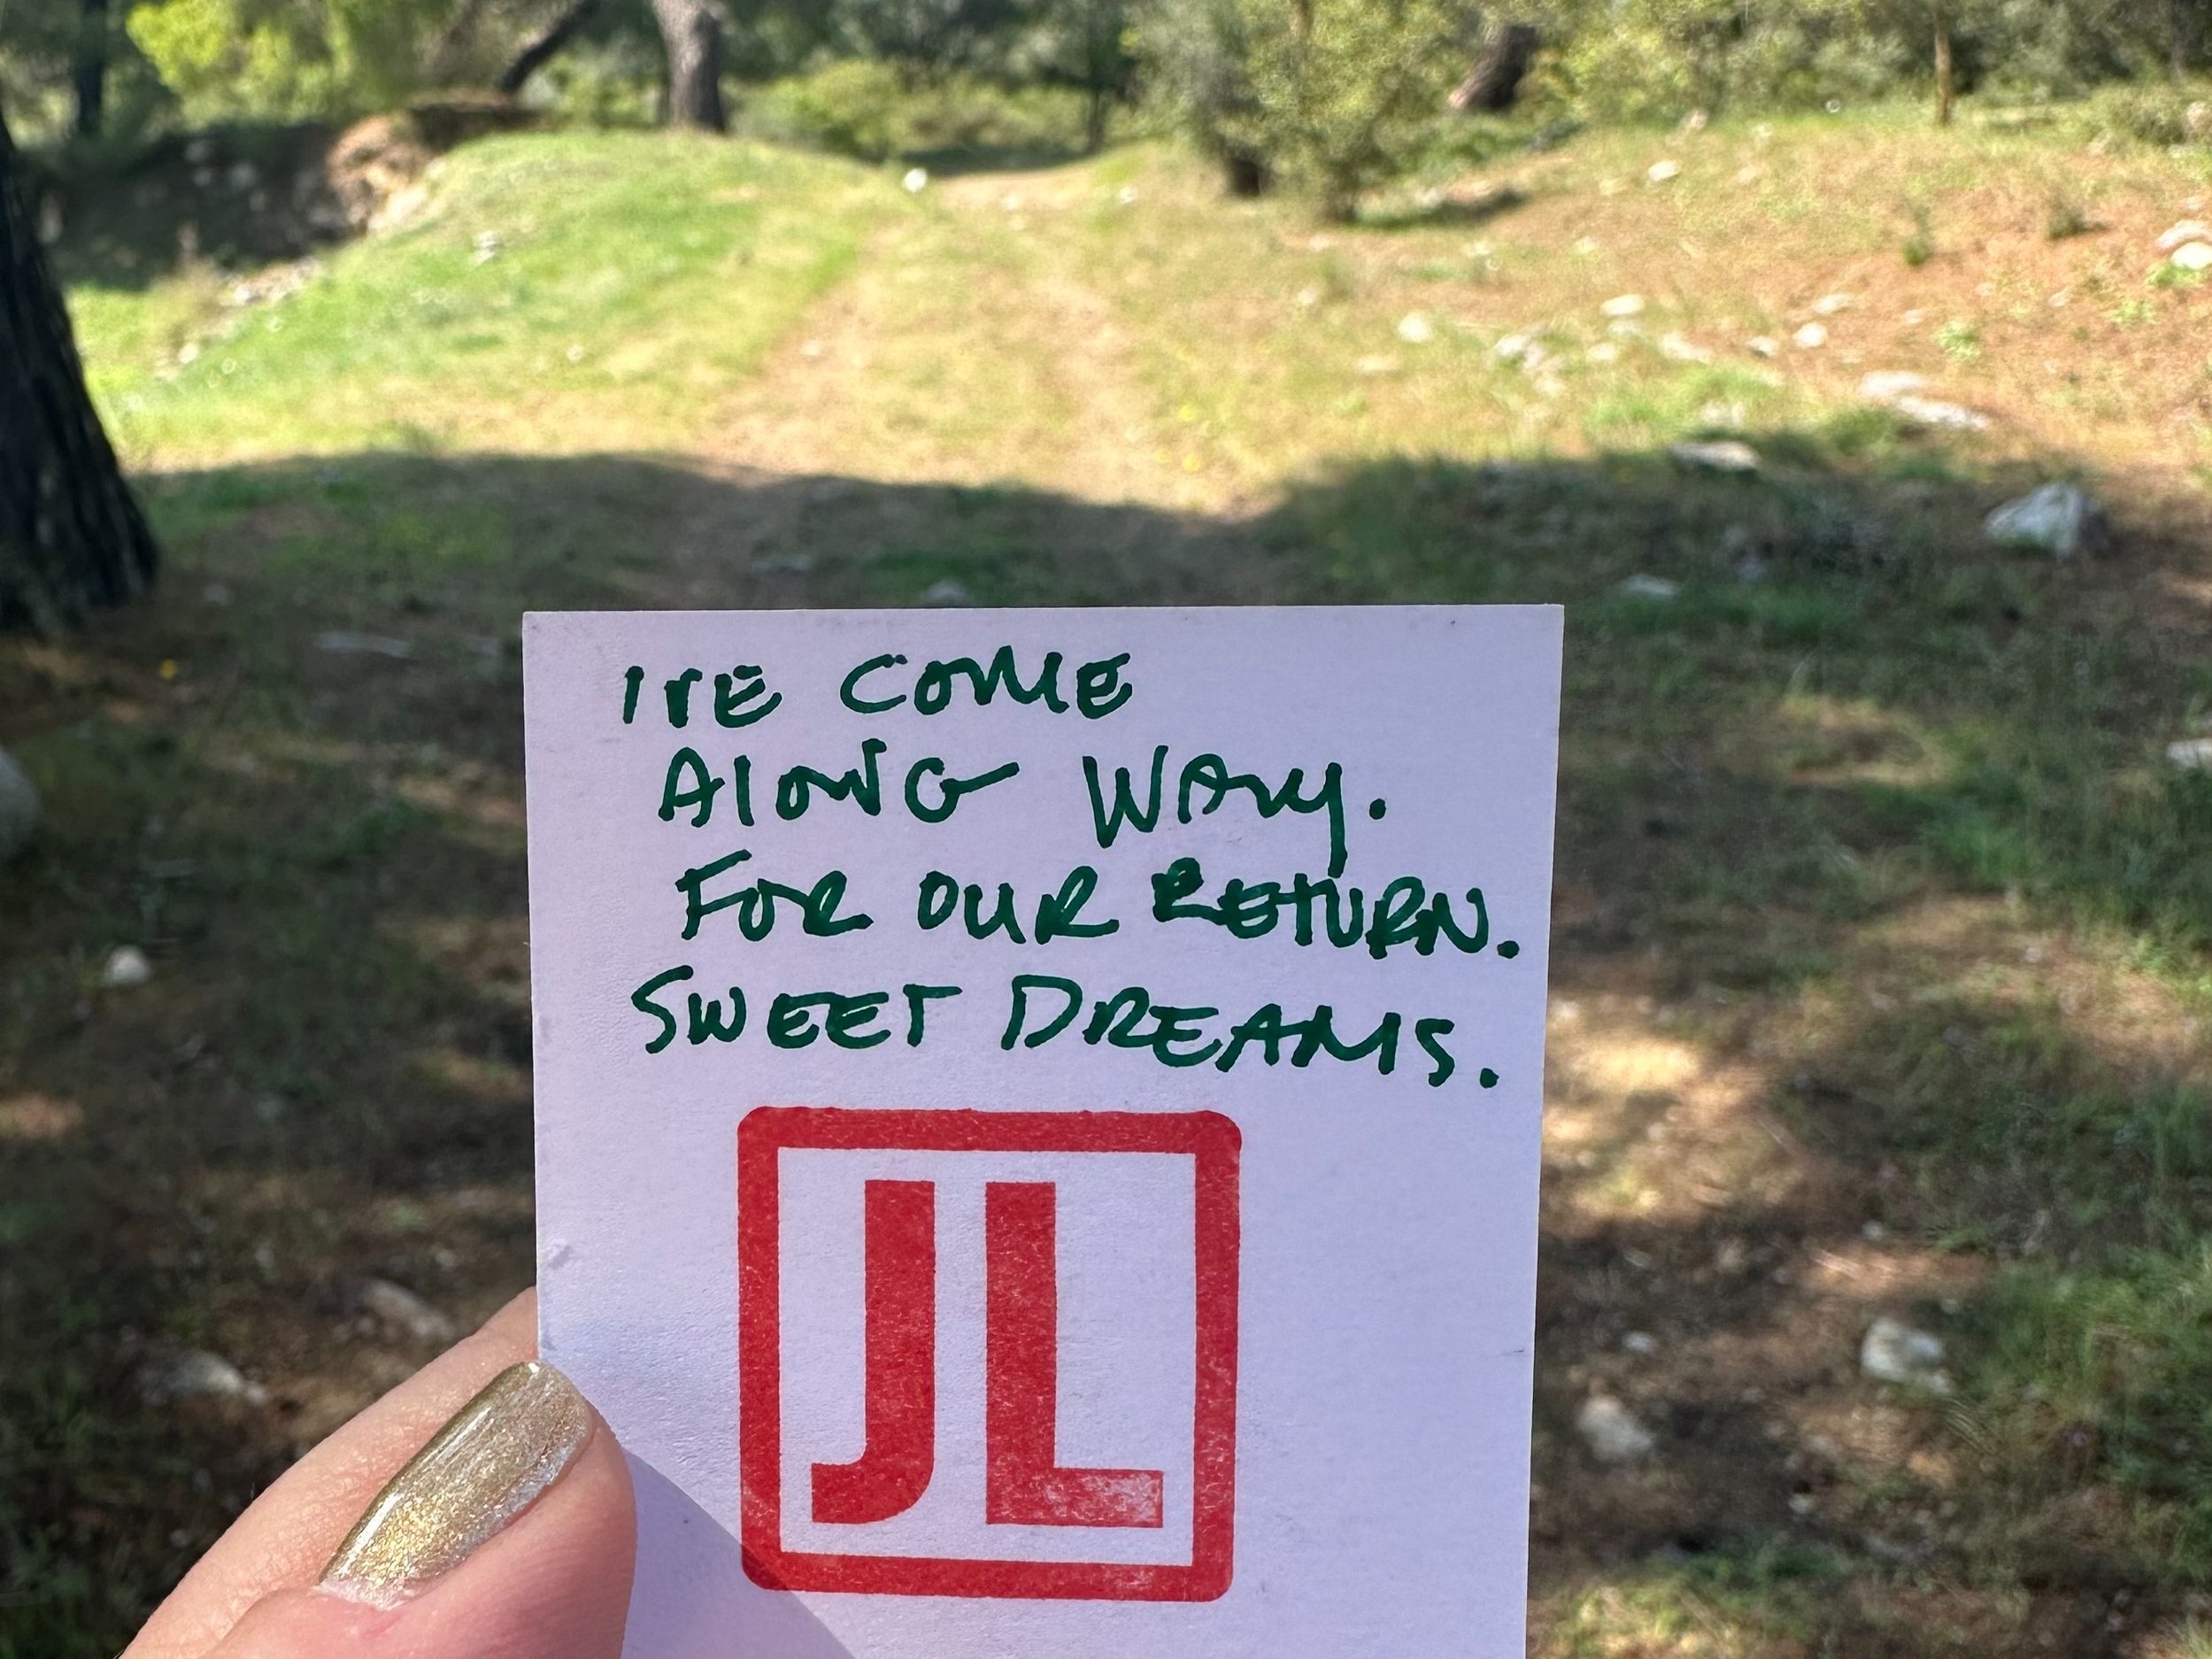 IVE COME
ALONG WAY.
FOR OUR RETURN.
SWEET DREAMS.
JL